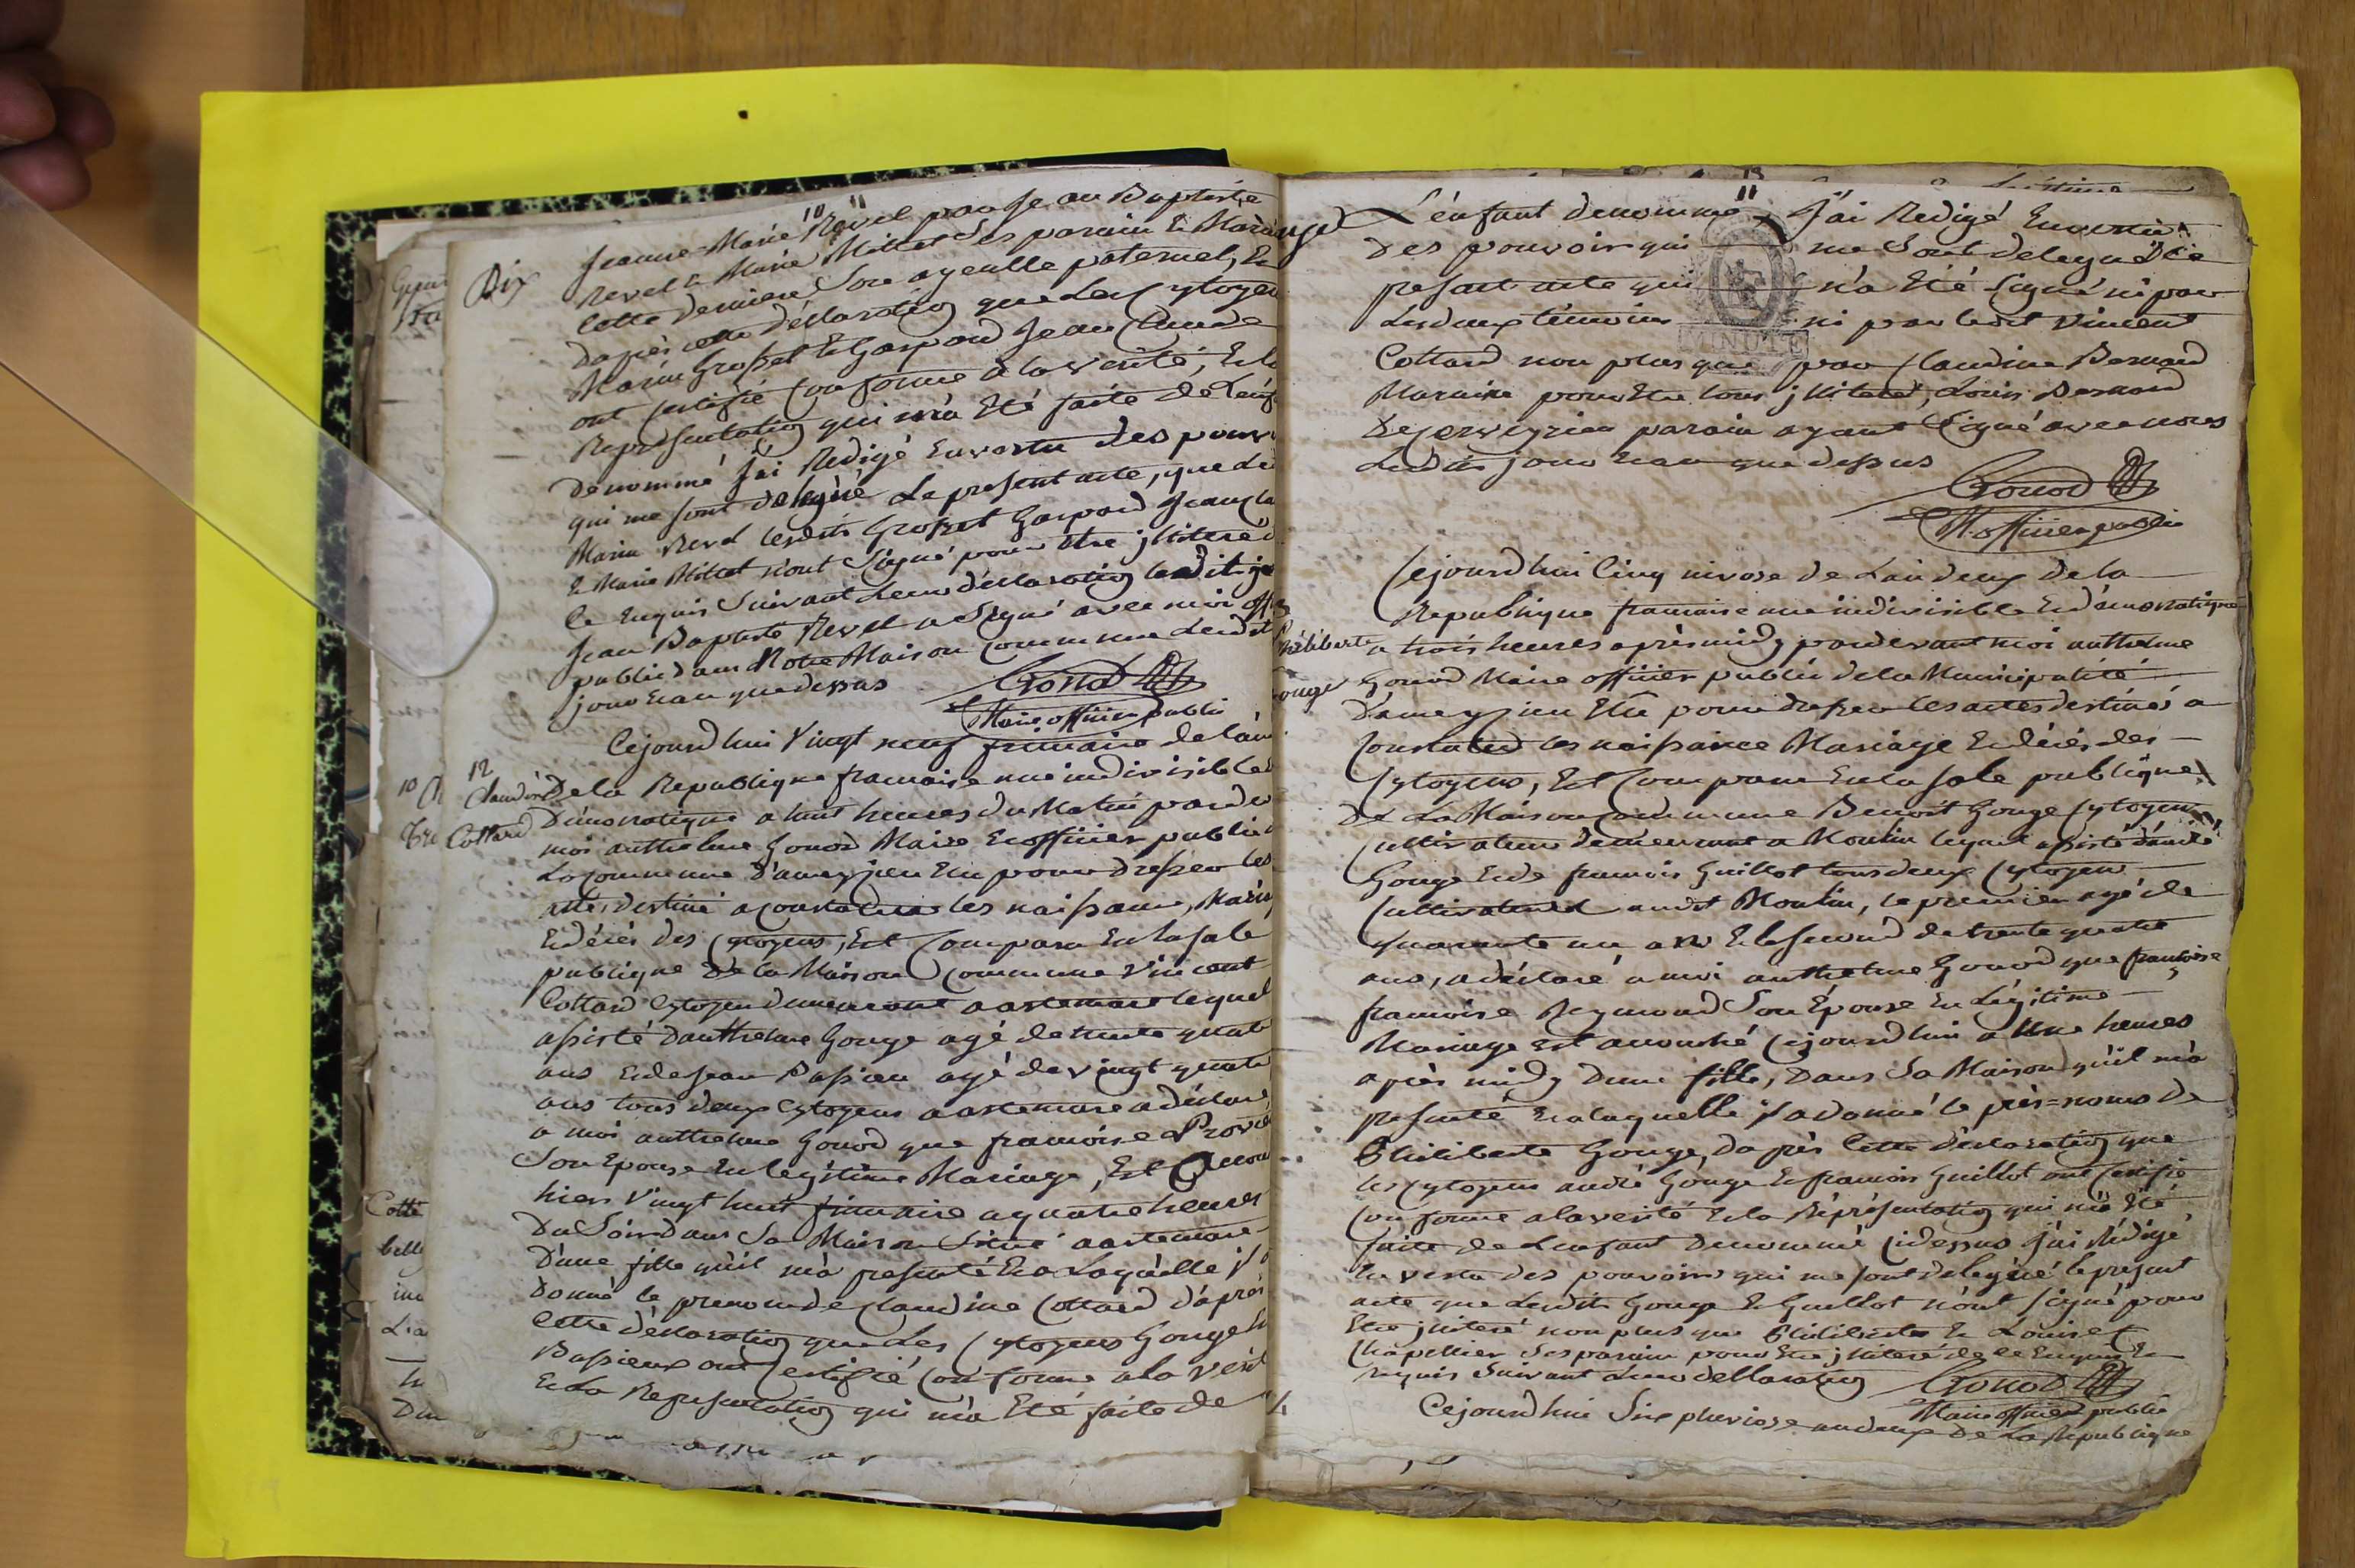 10 11
Dix
Jeanne-Marie Revel par Jean Baptiste
Revel & Marie Millet ses parain & Marai
Cette derniere Son ayeulle paternel, Et
Dapres cette déclaration que les Cytoyen
Marin Grosset & Gaspard Jean Claude
ont certifié Conforme a la verité, Et la
Representation qui m'a Eté faite de Lenf
dénommé J'ai Redigé En vertu des pouv
qui me sont délégué Le present acte, que led
Marin Revel lesdits Grosset Gaspard Jean Cla
& Marie Millet n'ont Signé pour être illiteré
Ce Enquis Suivant Leur déclaration ledit
Jean Baptiste Revel a Signé avec moi off
public dans Notre Maison Commune Lesdit
jour Et an que dessus
Gonod
Maire officier public
Cejourd'hui Vingt neuf frimaire de l'an
12
Claudine
Cottard
De la Republique francaise une indivisible
Démocratique a huit heures du Matin parde
moi anthelme Gonod Maire Et officier public
La Commune D'ameyzieu Elu pour dresser les
actes destiné a Constater les naissance, Maria
Et décés des Cytoyens, Est Comparu En la sale
publique De la Maison Commune Vincent
Cottard Cytoyen demeurant a artemare lequel
assisté Danthelme Gouge agé de trente quatre
ans Et de Jean Passieu agé de vingt quatre
ans tous deux Cytoyens a artemare a déclaré
a moi anthelme Gonod que francoise
Son Epouse En legitime Mariage, Est Accou
hier Vingt huit frimaire a quatre heures
Du Soir dans Sa Maison Situé a artemare
D'une fille qu'il m'a presenté Et a Laquelle il a
Donné le prenom de Claudine Cottard d'après
Cette déclaration que Les Cytoyens Gouge &
Passieux ont Certifié Conforme a la Verité
Et La Representation qui m'a Eté faite de
11
L'énfant denommé, J'ai Redigé En vertu
Des pouvoir qui me sont delegué Le
present acte qui n'a Eté Signé ni par
Les deux témoins ni par ledit Vincent
MINUTE
Cottard non plus que par Claudine Bernard
Maraine pour Etre tous illiteré, Louis Bernard
De cerveyrieu parain ayant Signé avec nous
Lesdits jour Et an que dessus
Gonod
M. officier public
Cejourd'hui Cinq nivose de L'an deux de la
Republique francaise une indivisible Et démocratique
a trois heures après midy pardevant moi anthelme
Gonod Maire officier public de la Municipalité
Philiberte
Gouge
D'ameyzieu Elû pour dresser les actes destinés a
Constater les naissance Mariage Et décés des
Cytoyens, Est Comparu En la sale publique
De La Maison Commune Benoit Gouge Cytoyen
Cultivateur demeurant a Moulin lequel assisté d'andré
Gouge Et de francois Guillot tous deux Cytoyen
Cultivateurs audit Moulin, le premier agé de
quarante un ans Et le second de trente quatre
ans, a déclaré a moi anthelme Gonod que francoise
francoise Reymond Son Épouse En Légitime
Mariage est accouché Cejourd'hui a Une heures
après midy d'une fille, Dans Sa Maison qu'il m'a
presenté Et a laquelle il a donné le près=noms de
Philiberte Gouge, Daprès Cette déclaration que
les Cytoyens andré Gouge & francois Guillot ont Certifié
Conforme a la verité Et la Réprésentation qui m'a Eté
faite de L'enfant Denommé Cidessus j'ai Rédigé
En vertu des pouvoirs qui me sont delegué le present
acte que Lesdits Gouge & Guillot n'ont signé pour
Etre illiteré non plus que Philiberte & Louise
Chapellier ses parain pour Etre illiteré de ce Enquis Et
requis Suivant Leur declaration
Gonod
Maire officier public
Cejourd'hui Six pluviose an deux De La Republique